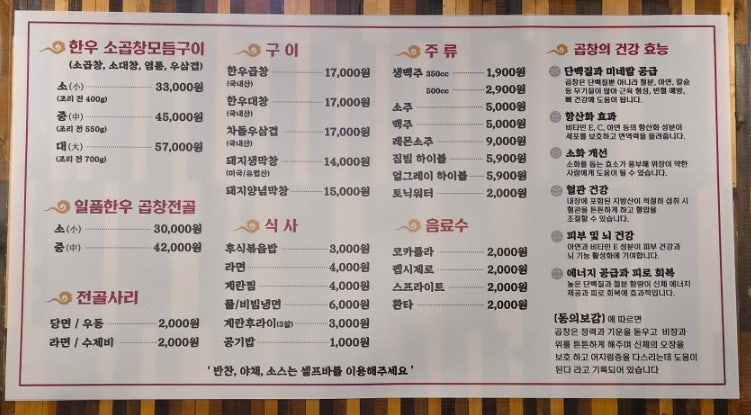 한우 소곱창모듬구이
(소곱창, 소대창, 염통, 우삼겹)
소(小) 33,000원
(조리 전 400g)
중(中) 45,000원
(조리 전 550g)
대(大) 57,000원
(조리 전 700g)
일품한우 곱창전골
소(小) 30,000원
중(中) 42,000원
전골사리
당면 / 우동 2,000원
라면 / 수제비 2,000원
구 이
한우곱창 17,000원
(국내산)
한우대창 17,000원
(국내산)
차돌우삼겹 17,000원
(국내산)
돼지생막창 14,000원
(미국/유럽산)
돼지양념막창 15,000원
식 사
후식볶음밥 3,000원
라면 4,000원
계란찜 4,000원
물/비빔냉면 6,000원
계란후라이(3알) 3,000원
공기밥 1,000원
주 류
생맥주 350cc 1,900원
500cc 2,900원
소주 5,000원
맥주 5,000원
레몬소주 9,000원
짐빔 하이볼 5,900원
얼그레이 하이볼 5,900원
토닉워터 2,000원
음료수
코카콜라 2,000원
펩시제로 2,000원
스프라이트 2,000원
환타 2,000원
곱창의 건강 효능
단백질과 미네랄 공급
곱창은 단백질뿐 아니라 철분, 아연, 칼슘
등 무기질이 많아 근육 형성, 빈혈 예방,
뼈 건강에 도움이 됩니다.
항산화 효과
비타민 E, C, 아연 등의 항산화 성분이
세포를 보호하고 면역력을 올려줍니다.
소화 개선
소화를 돕는 효소가 풍부해 위장이 약한
사람에게 도움이 될 수 있습니다.
혈관 건강
내장에 포함된 지방산이 적절히 섭취 시
혈관을 튼튼하게 하고 혈압을
조절할 수 있습니다.
피부 및 뇌 건강
아연과 비타민 E 성분이 피부 건강과
뇌 기능 활성화에 기여합니다.
에너지 공급과 피로 회복
높은 단백질과 철분 함량이 신체 에너지
제공과 피로 회복에 효과적입니다.
(동의보감)에 따르면
곱창은 정력과 기운을 돋우고 비장과
위를 튼튼하게 해주며 신체의 오장을
보호 하고 어지럼증을 다스리는데 도움이
된다 라고 기록되어 있습니다
' 반찬, 야채, 소스는 셀프바를 이용해주세요 '